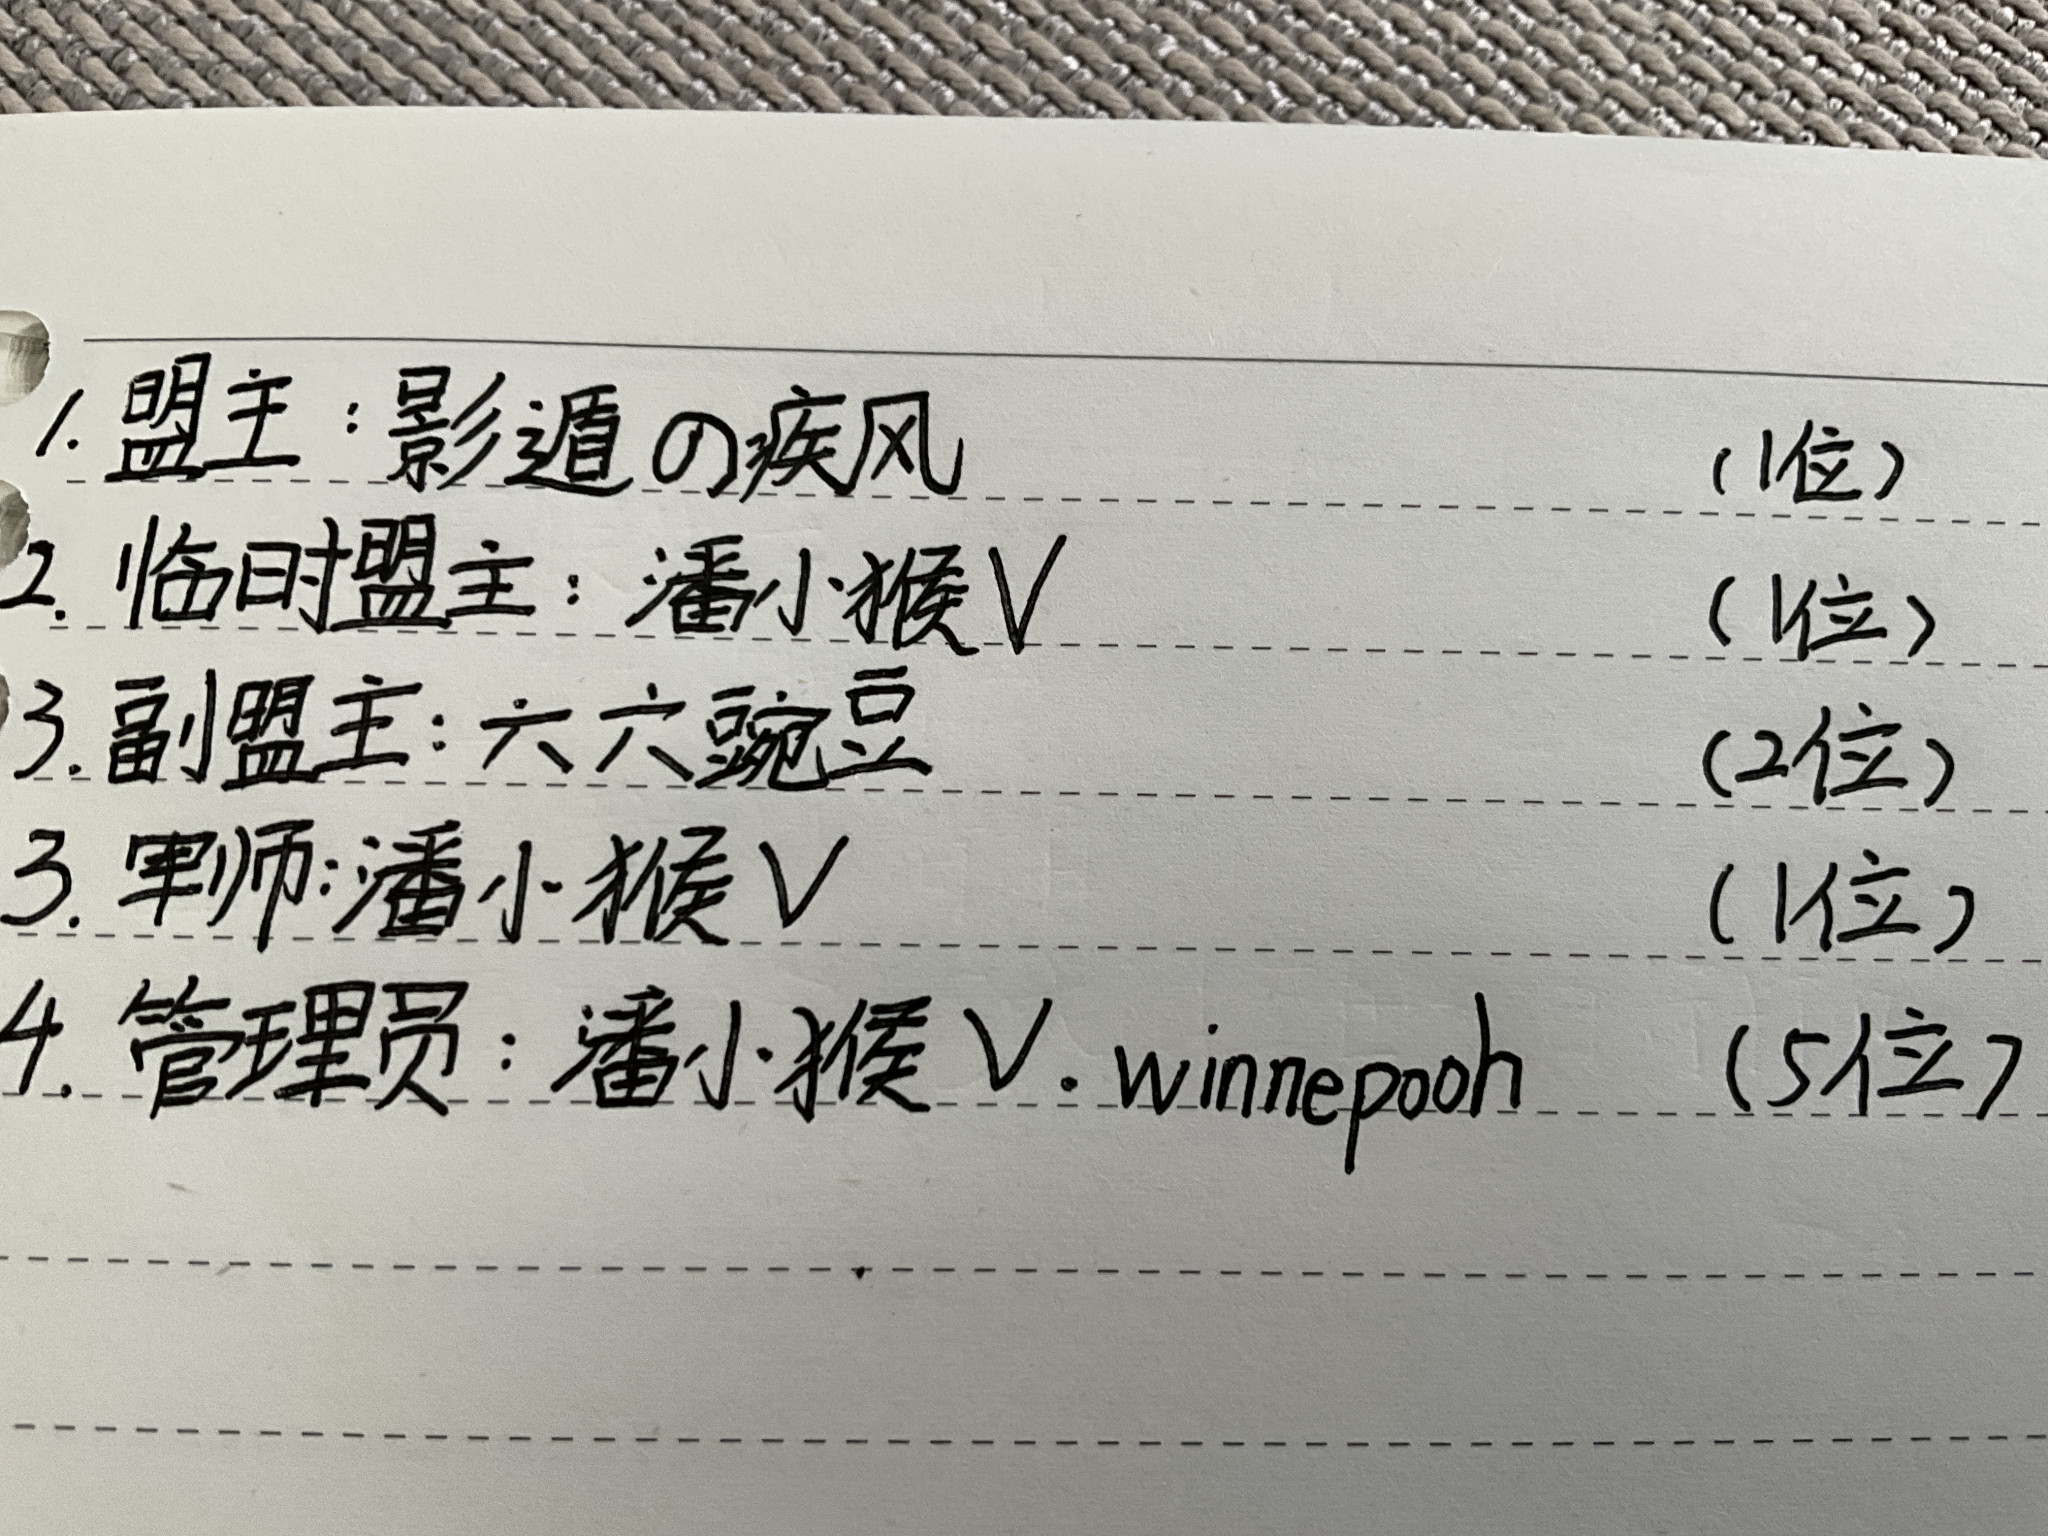 1. 盟主：影遁の疾风 （1位）
2. 临时盟主：潘小猴V （1位）
3. 副盟主：六六豌豆 （2位）
3. 军师：潘小猴V （1位）
4. 管理员：潘小猴V. winnepooh （5位）